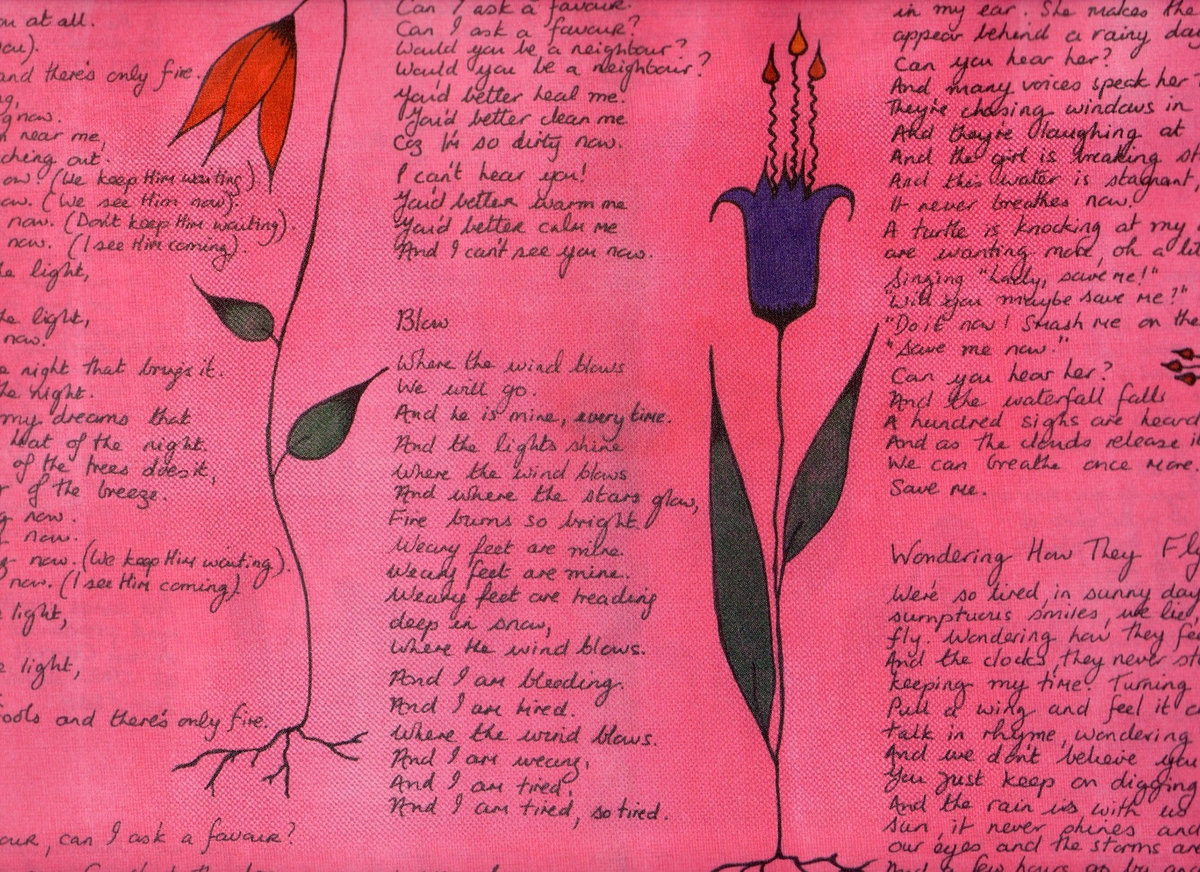 ou at all.
you).
and there's only fire.
ng,
g now.
n near me,
ching out.
ow. (We keep Him waiting)
ow. (We see Him now).
now. (Don't keep Him waiting).
now. (I see Him coming).
he light,
he light,
now.
e night that brings it.
he night.
my dreams that
heat of the night.
of the trees does it,
r of the breeze.
g now.
g now.
now. (We keep Him waiting).
now. (I see Him coming)
e light,
e light,
fools and there's only fire.
our, can I ask a favour?
Can I ask a favour?
Can I ask a favour?
Would you be a neighbour?
Would you be a neighbour?
You'd better heal me.
You'd better clean me
Coz I'm so dirty now.
I can't hear you!
You'd better warm me
You'd better calm me
And I can't see you now.
Blow
Where the wind blows
We will go.
And he is mine, every time.
And the lights shine
Where the wind blows
And where the stars glow,
Fire burns so bright.
Weary feet are mine.
Weary feet are mine.
Weary feet are treading
deep in snow,
Where the wind blows.
And I am bleeding.
And I am tired.
Where the wind blows.
And I am weary,
And I am tired,
And I am tired, so tired.
in my ear. She makes the
appear behind a rainy day
Can you hear her?
And many voices speak her
They're chasing windows in
And they're laughing at
And the girl is breaking st
And this water is stagnant
It never breathes now.
A turtle is knocking at my
are wanting more, oh a li
Singing "Lady, save me!"
"Will you maybe save me?"
"Do it now! Smash me on the
"Save me now."
Can you hear her?
And the waterfall falls
A hundred sighs are heard
And as the clouds release i
We can breathe once more
Save me.
Wondering How They Fly
We're so tired, in sunny day
sumptuous smiles, we lie
fly. Wondering how they f
And the clocks, they never st
keeping my time. Turning
Pull a wing and feel it c
talk in rhyme, wondering
And we don't believe you
You just keep on digging
And the rain is with us
sun, it never shines and
our eyes and the storms are
And a few hours go by and